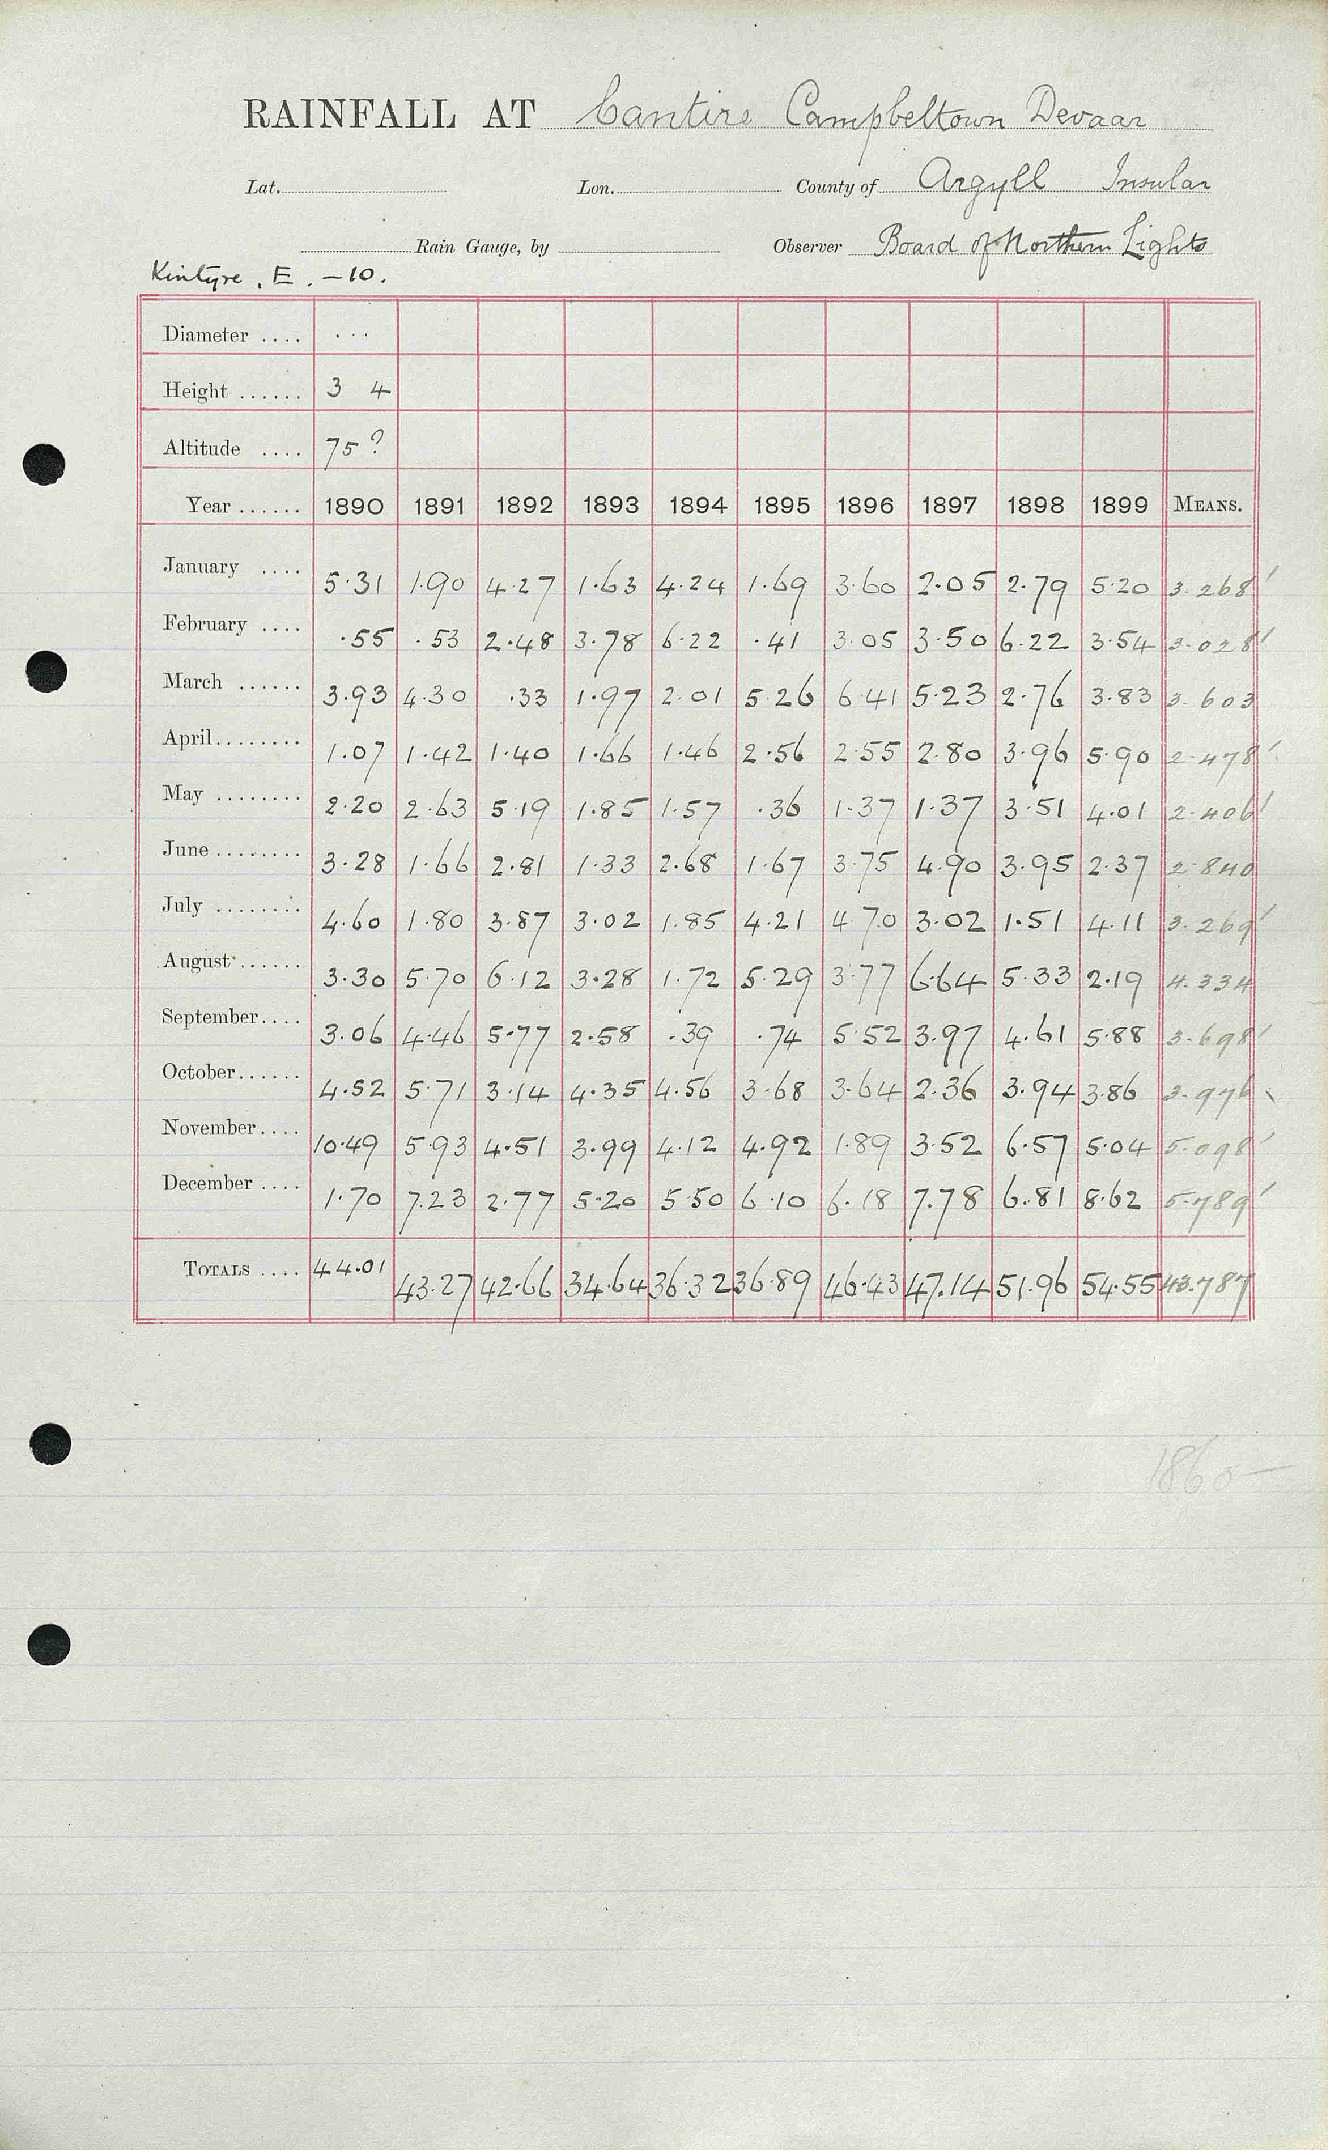 RAINFALL AT Cantire Campbeltown Devaar
Lat. Lon. County of Argyll Insular
Rain Gauge, by Observer Board of Northern Lights
Kintyre, E. -10.
Diameter .... ...
Height ...... 3 4
Altitude .... 75 ?
Year ...... 1890 1891 1892 1893 1894 1895 1896 1897 1898 1899 MEANS.
January .... 5.31 1.90 4.27 1.63 4.24 1.69 3.60 2.05 2.79 5.20 3.268
February .... .55 .53 2.48 3.78 6.22 .41 3.05 3.50 6.22 3.54 3.028
March ...... 3.93 4.30 .33 1.97 2.01 5.26 6.41 5.23 2.76 3.83 3.603
April........ 1.07 1.42 1.40 1.66 1.46 2.56 2.55 2.80 3.96 5.90 2.478
May ........ 2.20 2.63 5.19 1.85 1.57 .36 1.37 1.37 3.51 4.01 2.406
June ........ 3.28 1.66 2.81 1.33 2.68 1.67 3.75 4.90 3.95 2.37 2.840
July ........ 4.60 1.80 3.87 3.02 1.85 4.21 4.70 3.02 1.51 4.11 3.269
August ...... 3.30 5.70 6.12 3.28 1.72 5.29 3.77 6.64 5.33 2.19 4.334
September.... 3.06 4.46 5.77 2.58 .39 .74 5.52 3.97 4.61 5.88 3.698
October...... 4.52 5.71 3.14 4.35 4.56 3.68 3.64 2.36 3.94 3.86 3.976
November.... 10.49 5.93 4.51 3.99 4.12 4.92 1.89 3.52 6.57 5.04 5.098
December .... 1.70 7.23 2.77 5.20 5.50 6.10 6.18 7.78 6.81 8.62 5.789
TOTALS .... 44.01 43.27 42.66 34.64 36.32 36.89 46.43 47.14 51.96 54.55 43.787
1860 —